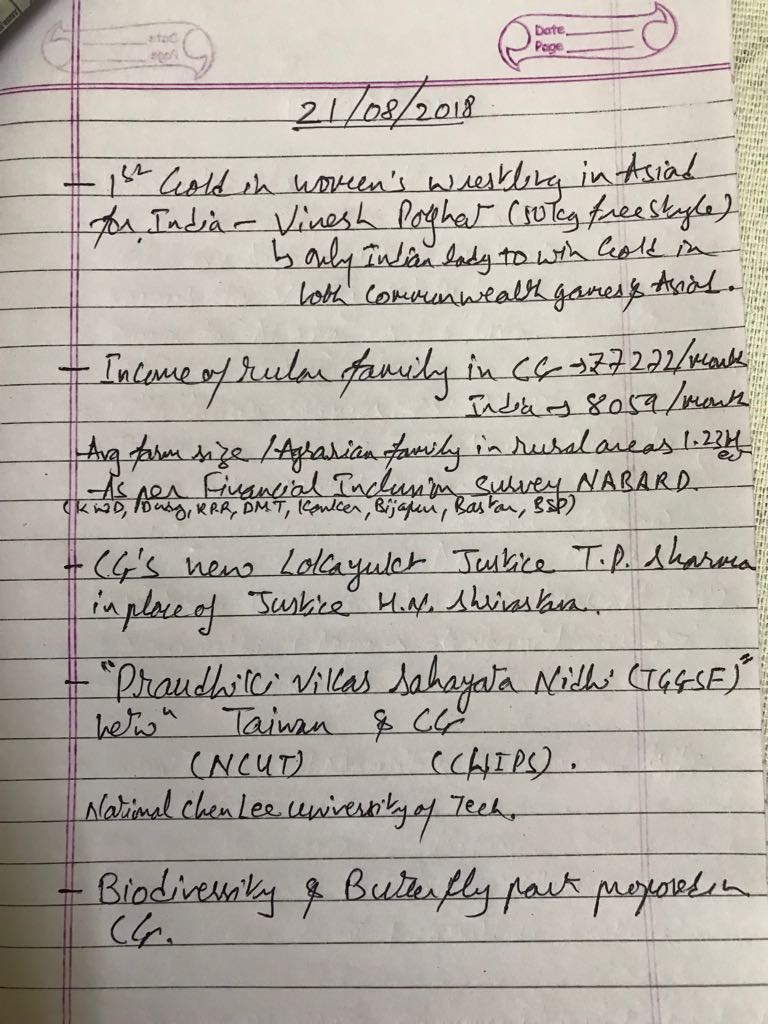 Date
Page
21/08/2018
- 1st Gold in women's wrestling in Asiad
for India - Vinesh Poghat (50kg freestyle)
↳ only Indian lady to win Gold in
both Commonwealth games & Asiad.
- Income of rular family in CG → 7272/month
India → 8059/month
Avg farm size / Agrarian family in rural areas 1.23H
ec
- As per Financial Inclusion survey NABARD
(KWD, Durg, RRR, DMT, Kanker, Bijapur, Bastar, BSP)
- CG's new Lokayukt Justice T.P. Sharma
in place of Justice H.N. Shrivastava.
- "Praudhiki Vikas Sahayata Nidhi (TGGSF)"
betwn Taiwan & CG
(NCUT) (CHIPS).
National Chen Lee University of Tech.
- Biodiversity & Butterfly park proposed in
CG.